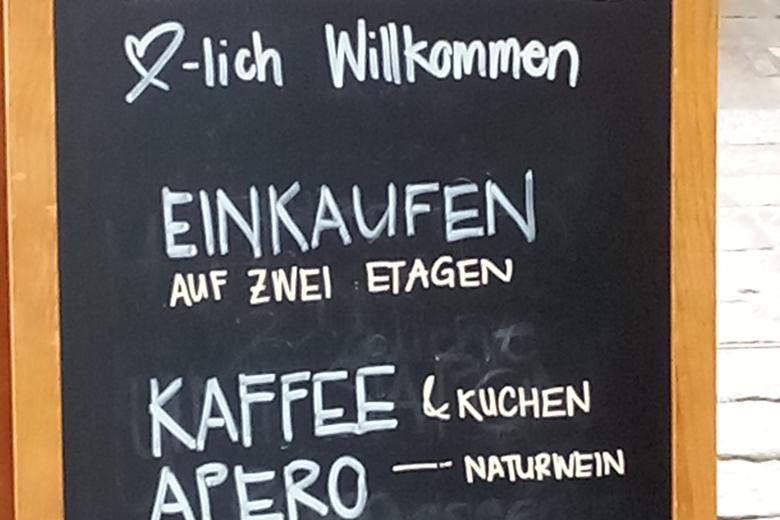 ♡-lich Willkommen
EINKAUFEN
AUF ZWEI ETAGEN
KAFFEE & KUCHEN
APERO — NATURWEIN